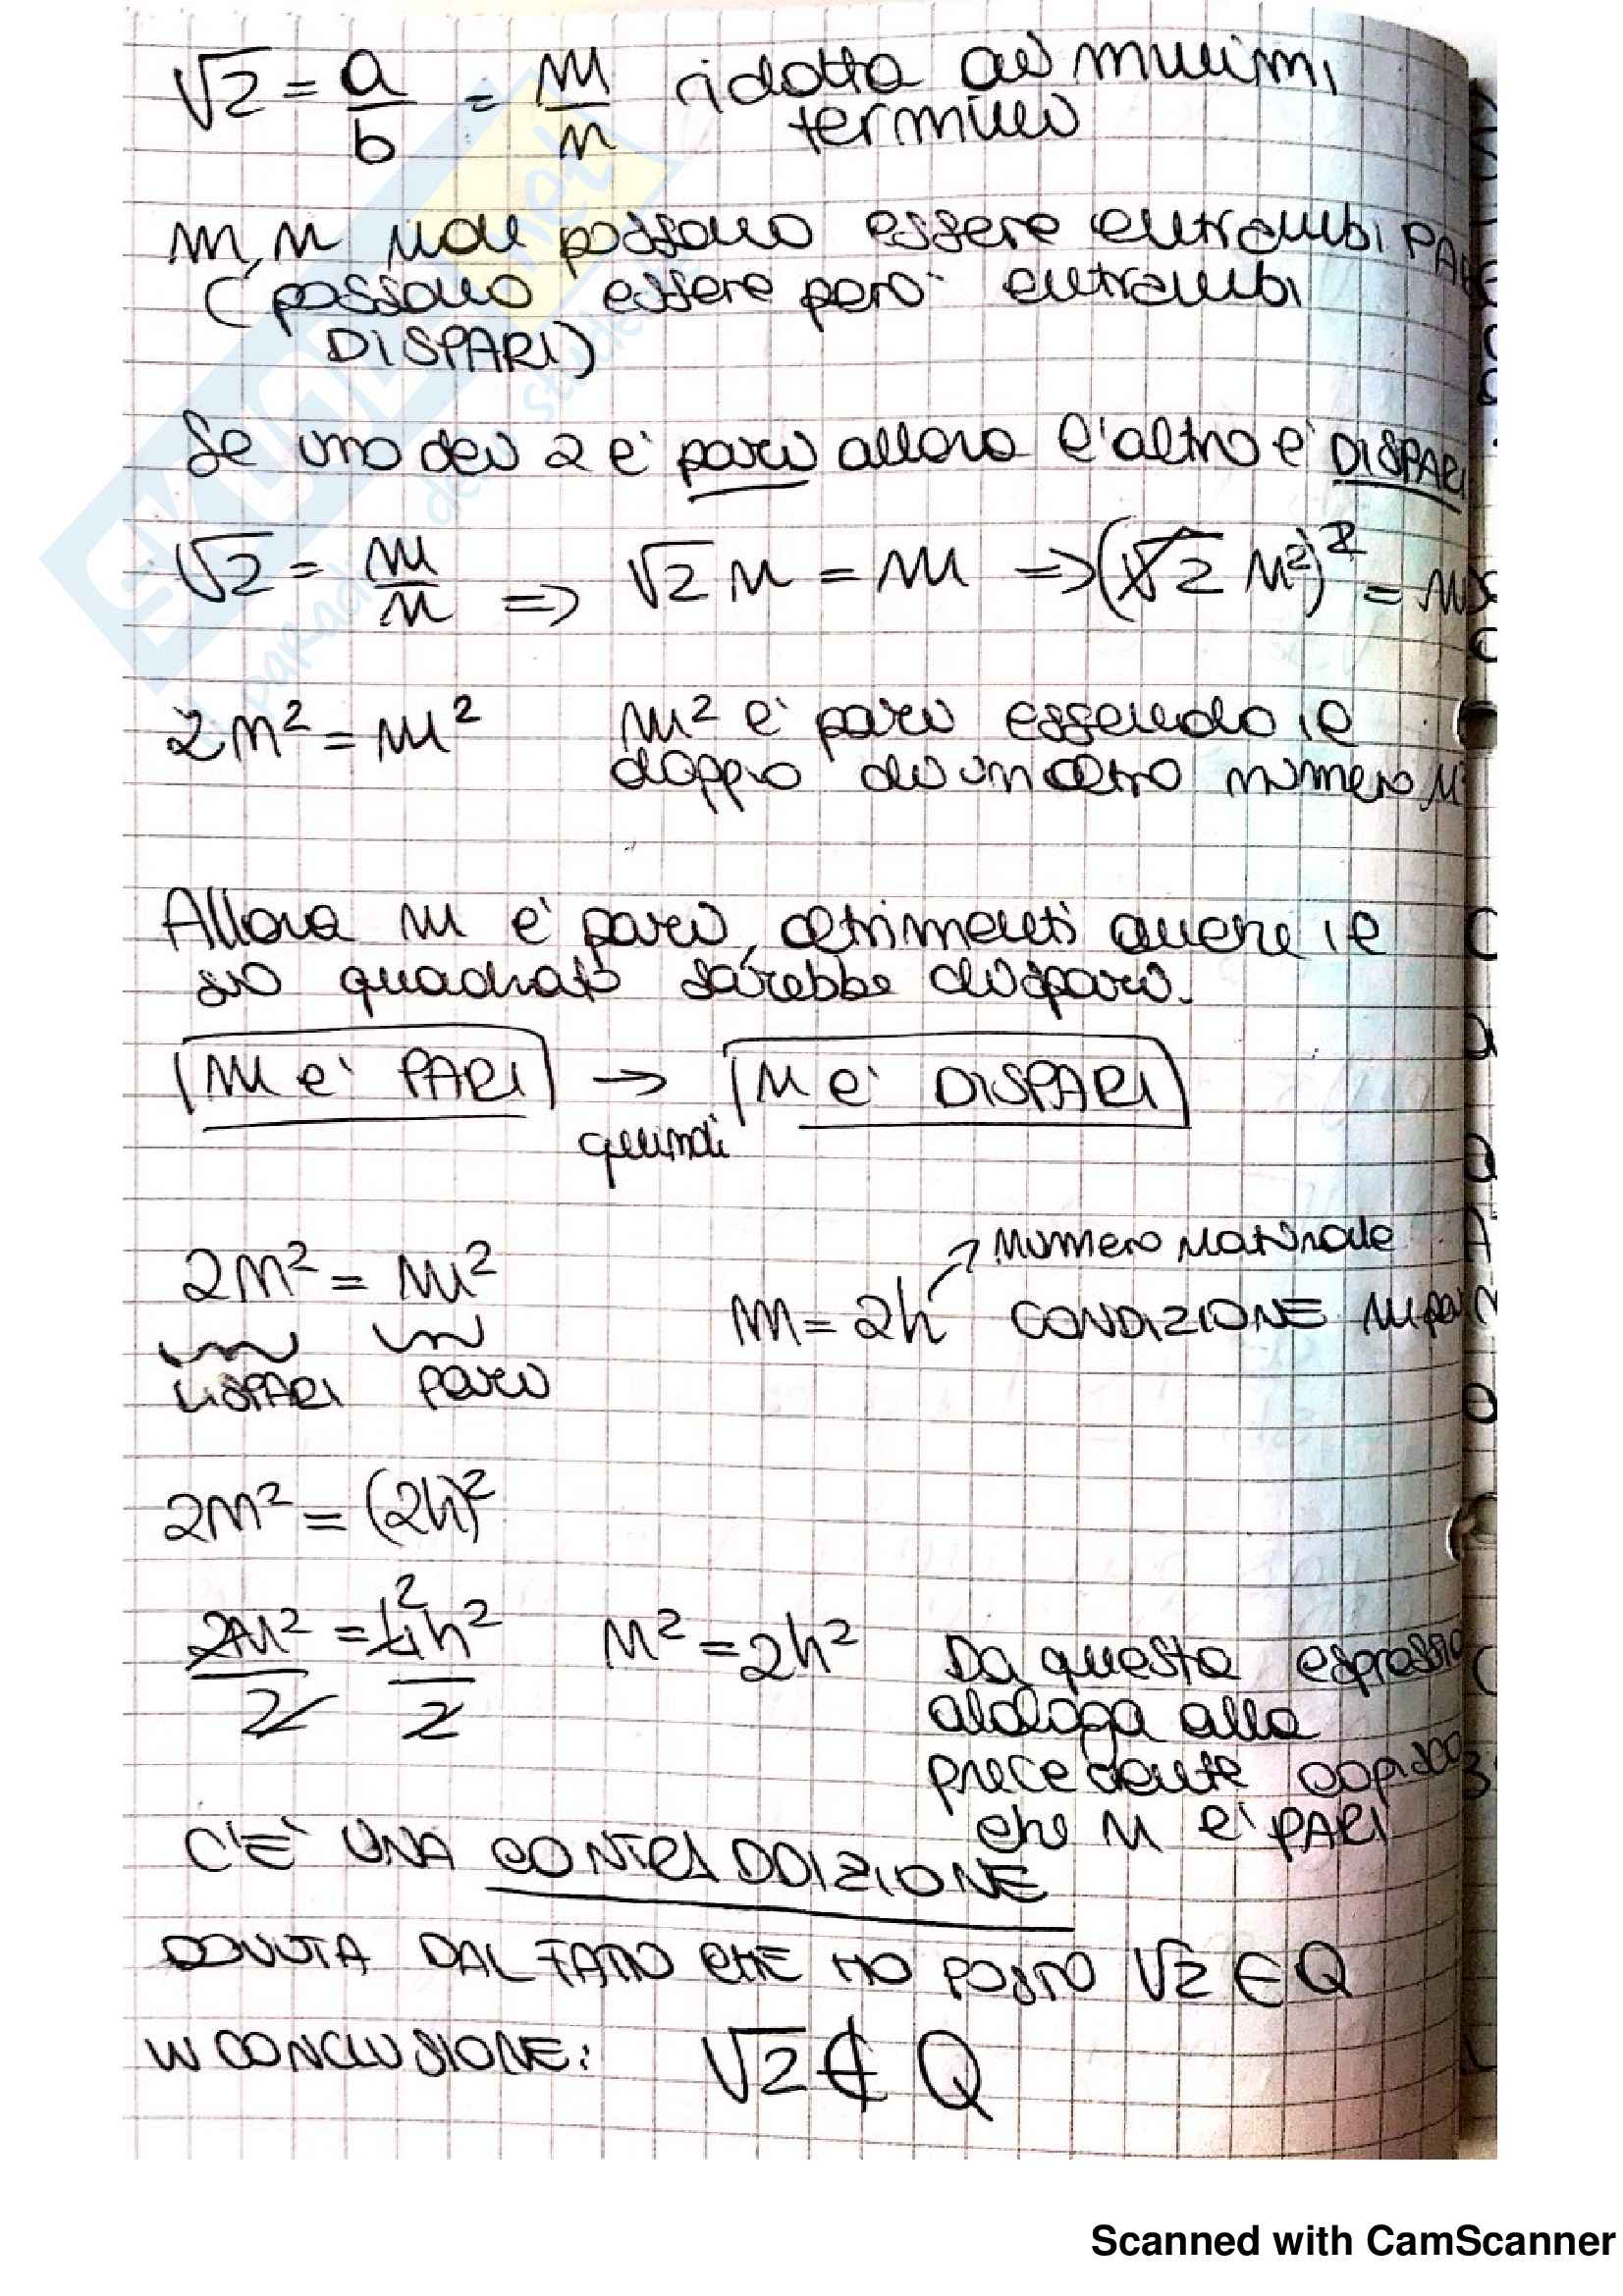 √2 = a/b = m/n ridotta ai minimi
termini
m, n non possono essere entrambi PARI
(possono essere però entrambi
DISPARI)
Se uno dei 2 è pari allora l'altro è DISPARI
√2 = m/n => √2 n = m => (√2 n²)² = m
2n² = m² m² è pari essendo il
doppio di un altro numero n²
Allora m è pari, altrimenti anche il
suo quadrato sarebbe dispari.
m è PARI → n è DISPARI
quindi
numero naturale
2n² = m² m = 2h CONDIZIONE m pari
DISPARI pari
2n² = (2h)²
2n²/2 = 4h²/2 2 n² = 2h² Da questa espressio
alologa alla
precedente capisco
che n è PARI
C'È UNA CONTRADDIZIONE
DOVUTA DAL FATTO CHE HO POSTO √2 ∈ Q
IN CONCLUSIONE: √2 ∉ Q
SKUOLA.net
il paradiso dello studente
Scanned with CamScanner